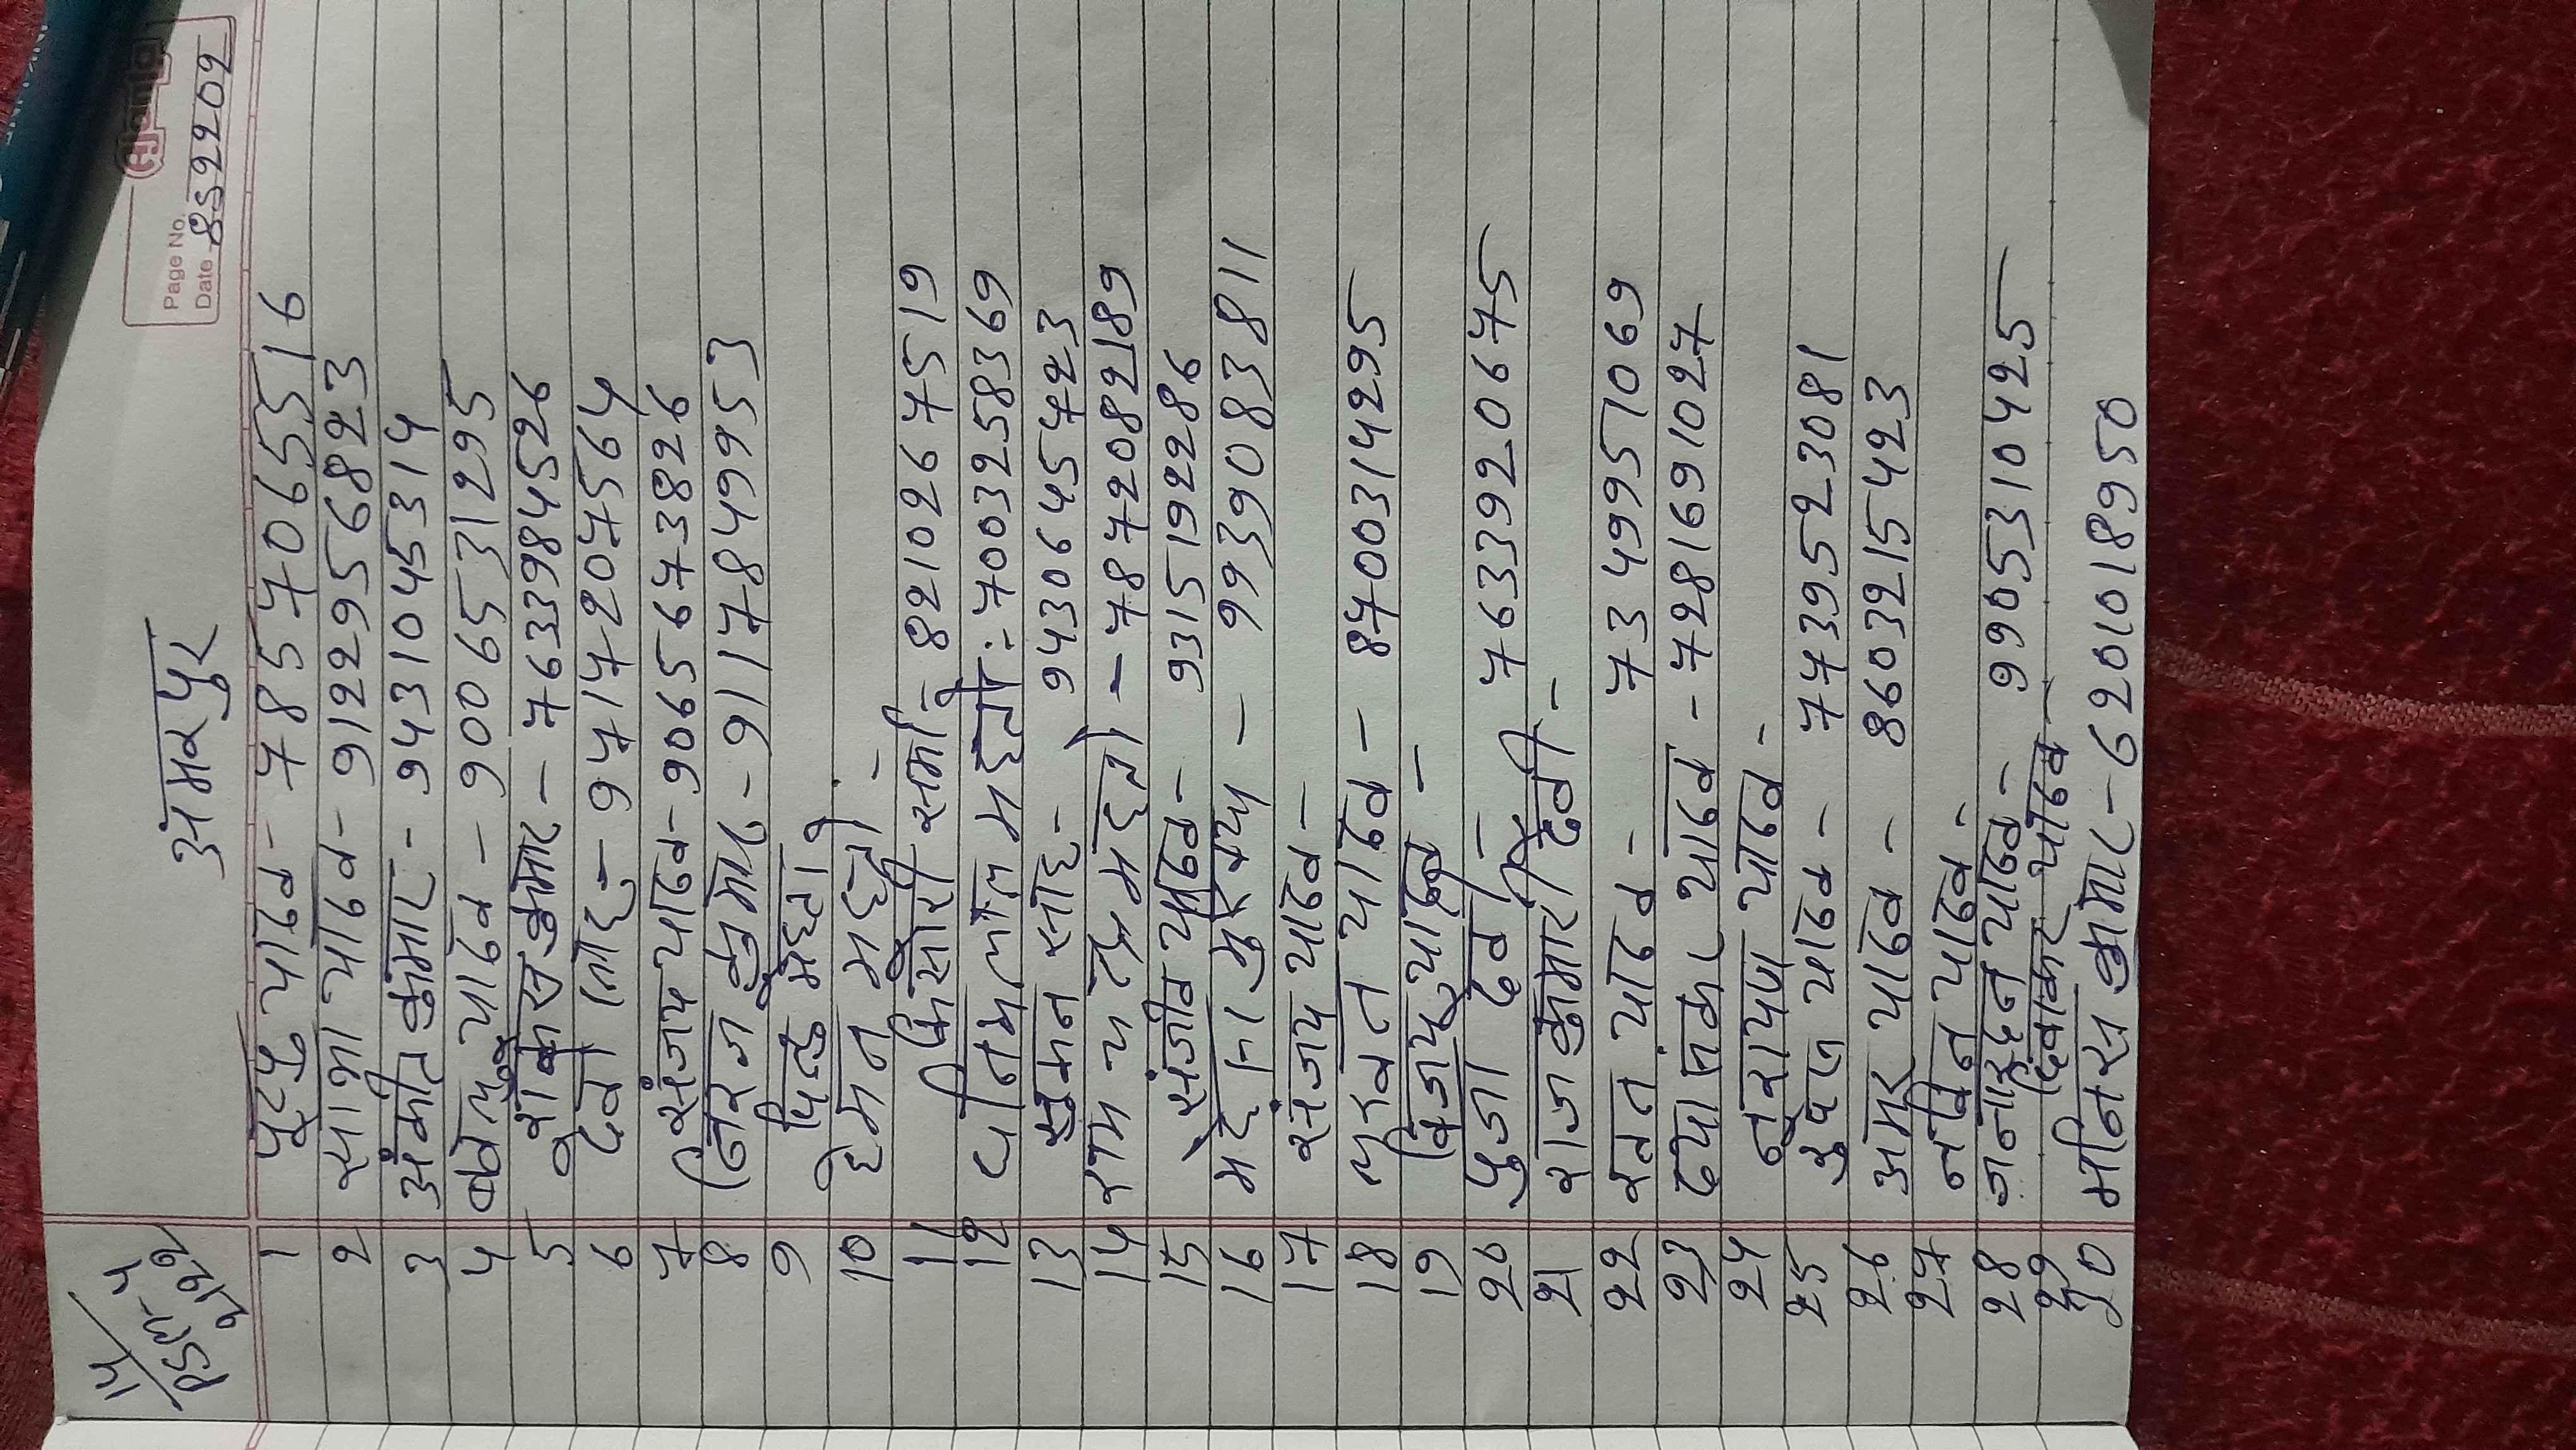 14/
PSM-4
2192
अमरपुर
Page No.
Date 8522209
1 पुटपुट यादव - 7857065516
2 साभा यादव - 9122956823
3 अंमीत कुमार - 9431045314
4 यादव - 9006531295
5 कुमार - 7633984526
6 - 9472074564
7 संजय यादव - 9065673826
8 निरज कुमार - 9117849953
9 पिन्टु महतो
10 हेमन महतो : -
11 किसोरी समा - 8210267519
12 महतो :- 7003258369
13 सुमन साह - 9430645723
14 महतो - 7872082189
15 संजीव यादव - 9315192286
16 - 9939083811
17 संजय यादव -
18 यादव - 8700314295
19 विजय यादव -
20 पुजा देवी - 7633920675
21 राज कुमारी देवी -
22 रतन यादव - 7349951069
23 यादव - 7281691027
24 नुरायण यादव -
25 यादव - 7739523081
26 अमर यादव - 8603215423
27 नविन यादव -
28 जनार्दन यादव - 9905310425
29 दिवाकर यादव -
30 मनिस कुमार - 6201018950